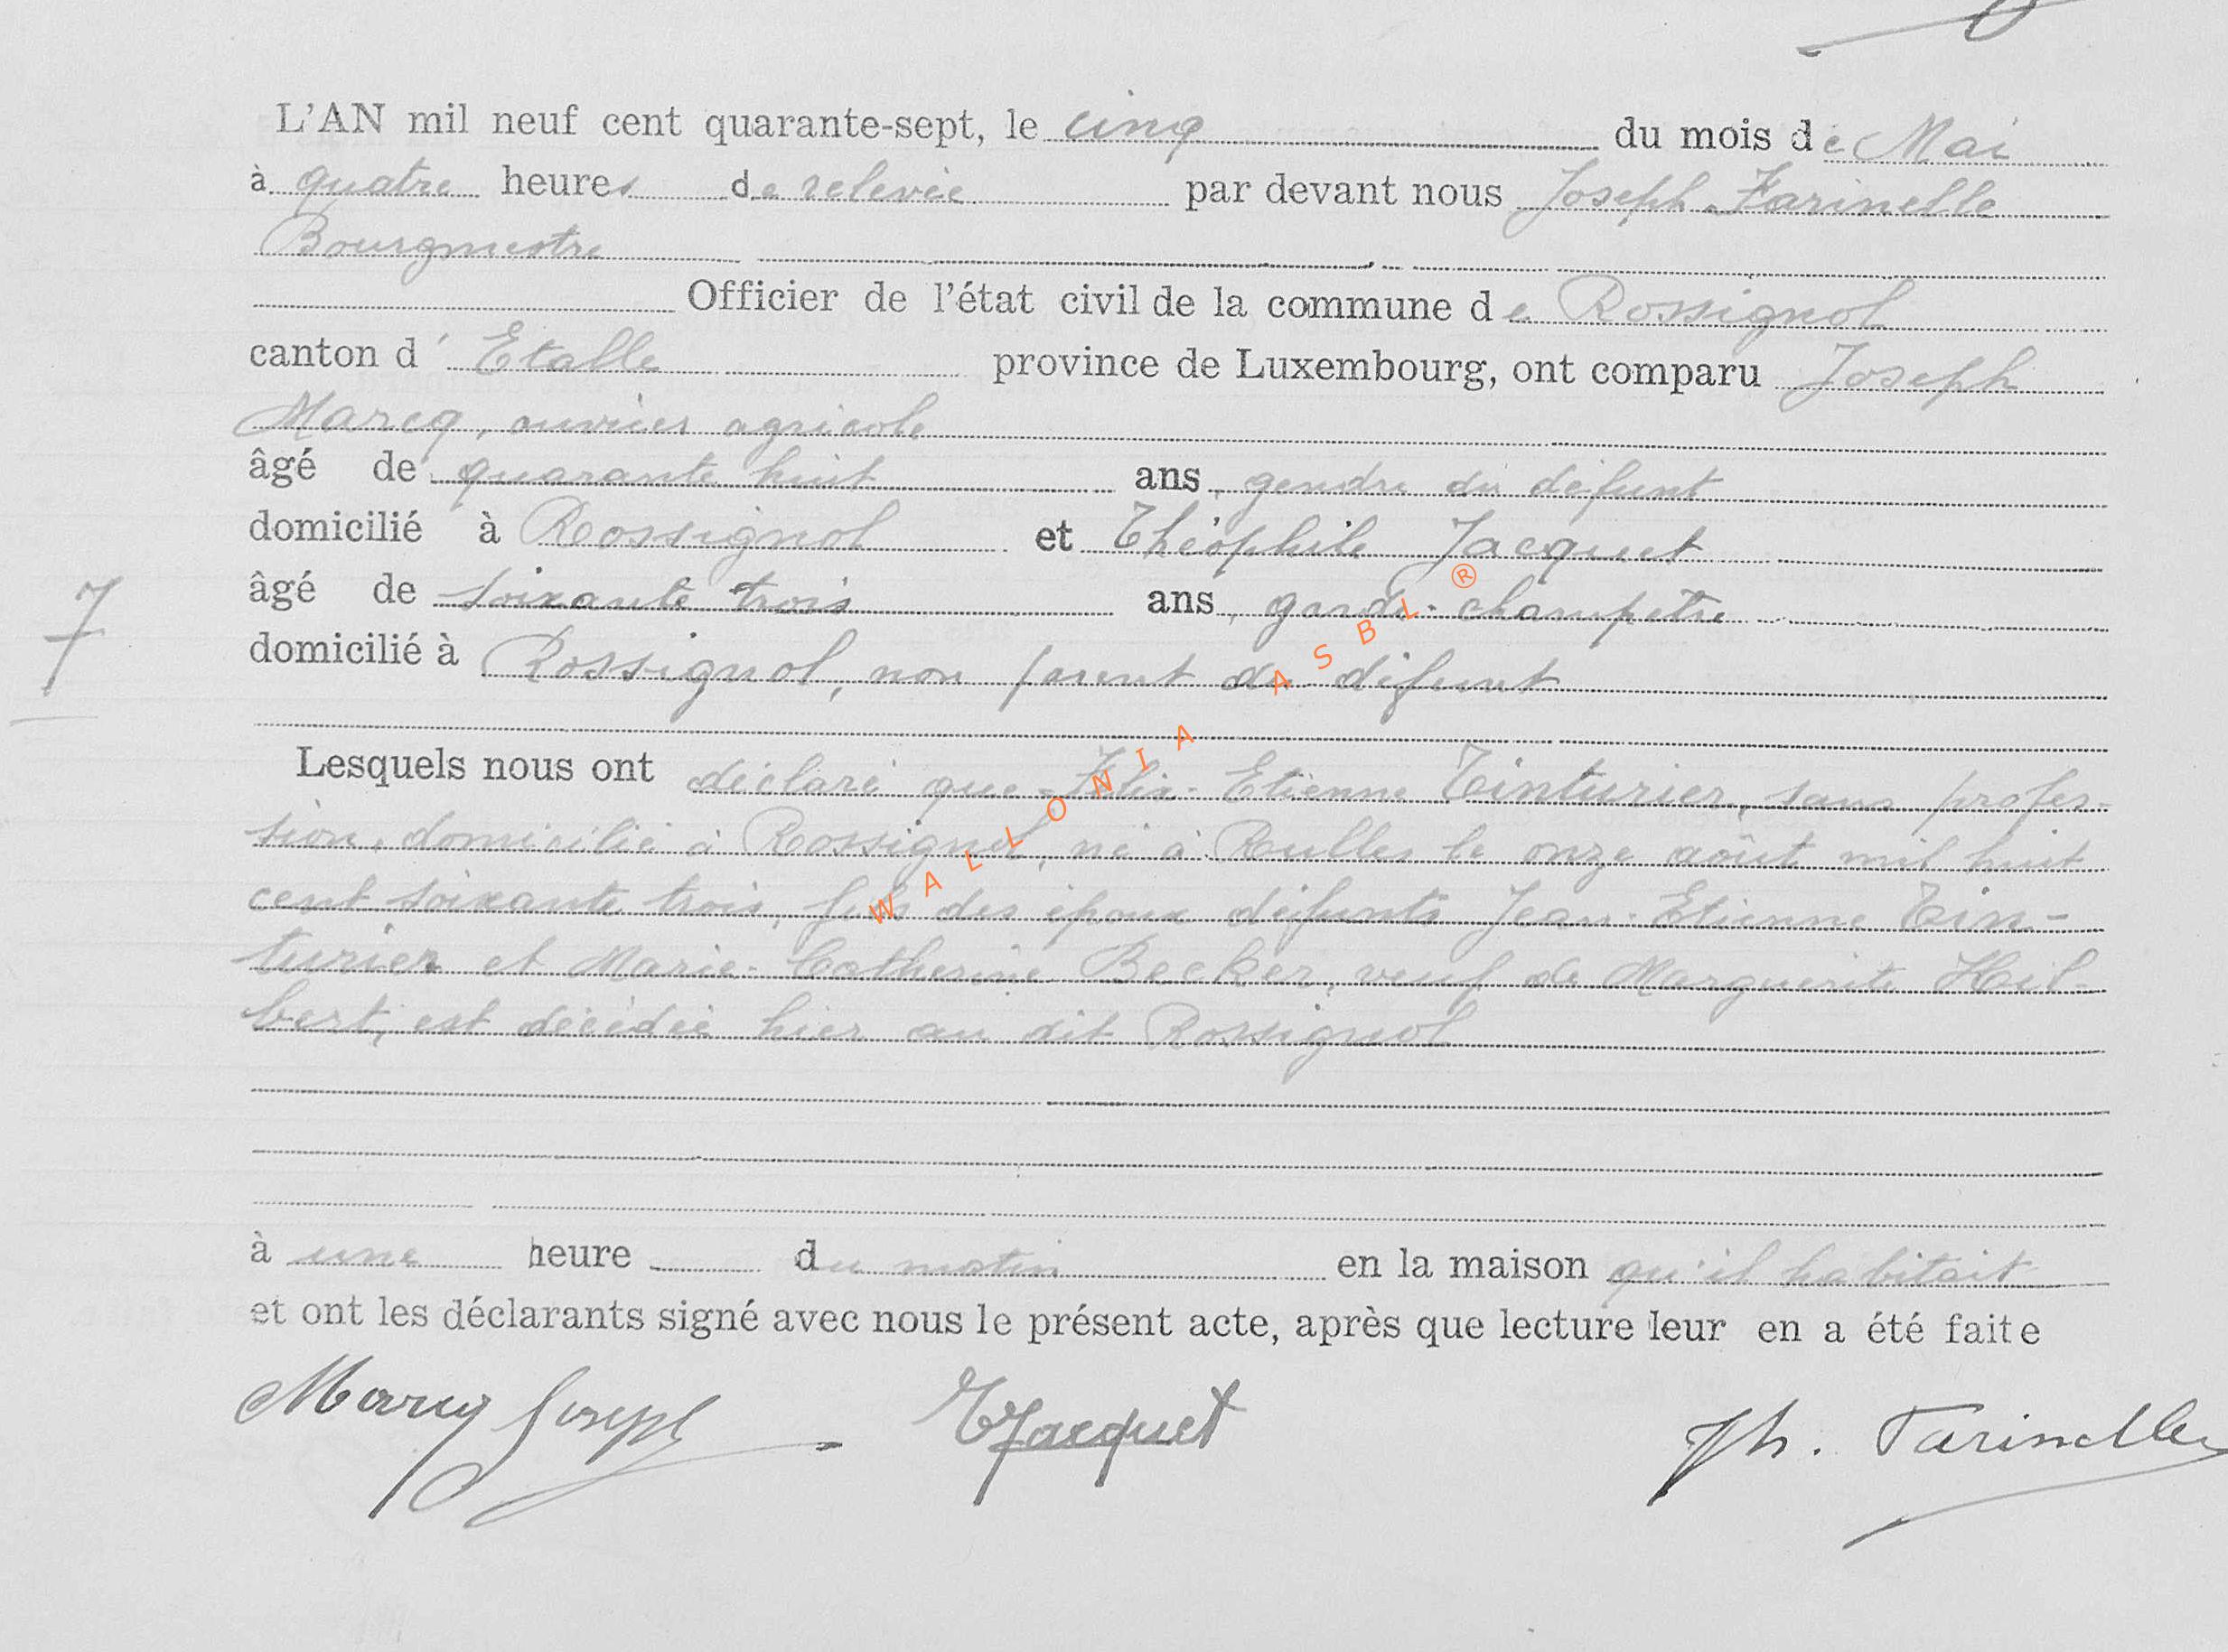 L'AN mil neuf cent quarante-sept, le cinq du mois de Mai
à quatre heures de relevée par devant nous Joseph Farinelle
Bourgmestre
Officier de l'état civil de la commune de Rossignol
canton d' Etalle province de Luxembourg, ont comparu Joseph
Marcq, ouvrier agricole
âgé de quarante huit ans, gendre du défunt
domicilié à Rossignol et Théophile Jacquet
âgé de soixante trois ans, garde-champêtre
7
domicilié à Rossignol, non parent du défunt
Lesquels nous ont déclaré que Félix-Etienne Tinturier, sans profes-
sion, domicilié à Rossignol, né à Rulles le onze août mil huit
cent soixante trois, fils des époux défunts Jean-Etienne Tin-
turier et Marie-Catherine Becker, veuf de Marguerite Hil-
bert, est décédé hier au dit Rossignol
à une heure du matin en la maison qu'il habitait
et ont les déclarants signé avec nous le présent acte, après que lecture leur en a été faite
Marcq Joseph TJacquet Jh. Farinelle
WALLONIA ASBL ®